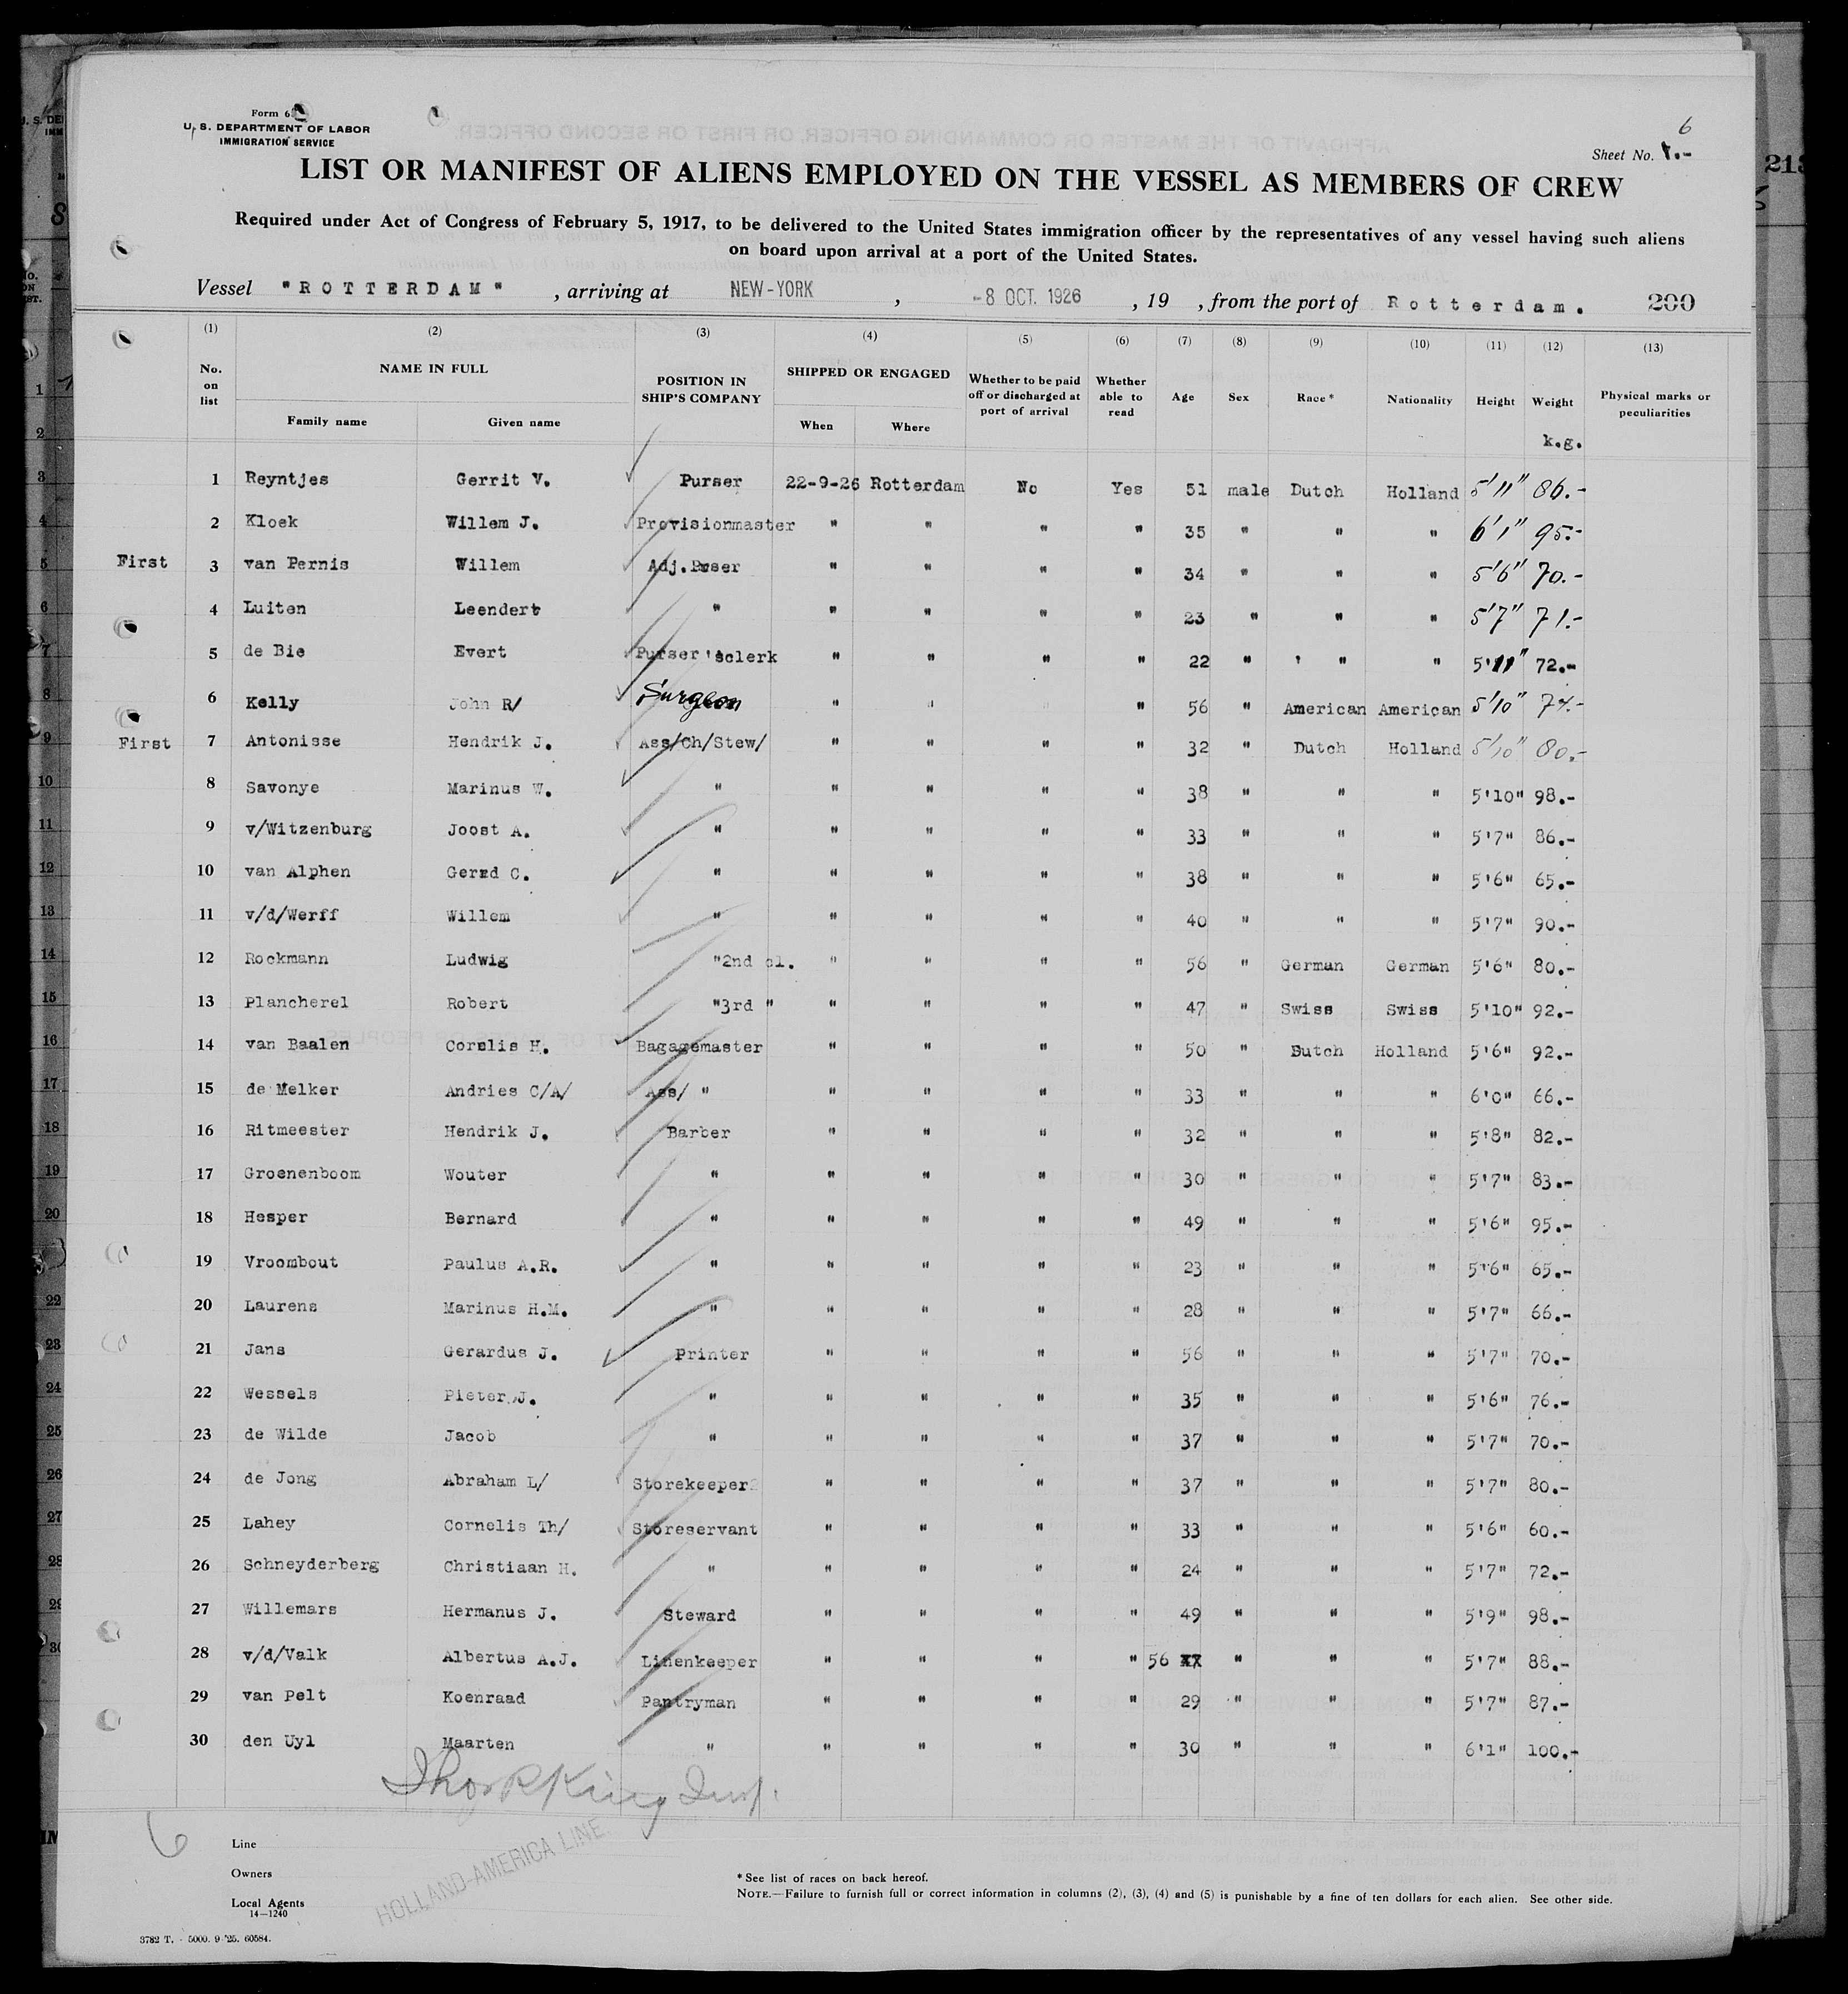 Form 6
U. S. DEPARTMENT OF LABOR
IMMIGRATION SERVICE
6
Sheet No.
LIST OR MANIFEST OF ALIENS EMPLOYED ON THE VESSEL AS MEMBERS OF CREW
Required under Act of Congress of February 5, 1917, to be delivered to the United States immigration officer by the representatives of any vessel having such aliens
on board upon arrival at a port of the United States.
Vessel "ROTTERDAM" , arriving at NEW-YORK , -8 OCT. 1926 , 19 , from the port of Rotterdam. 200
(1) (2) (3) (4) (5) (6) (7) (8) (9) (10) (11) (12) (13)
No. on list NAME IN FULL Family name Given name POSITION IN SHIP'S COMPANY SHIPPED OR ENGAGED When Where Whether to be paid off or discharged at port of arrival Whether able to read Age Sex Race* Nationality Height Weight Physical marks or peculiarities
k.g.
1 Reyntjes Gerrit V. Purser 22-9-26 Rotterdam No Yes 51 male Dutch Holland 5'11" 86.-
2 Kloek Willem J. Provisionmaster " " " " 35 " " " 6'1" 95.-
First 3 van Pernis Willem Adj.Purser " " " " 34 " " " 5'6" 70.-
4 Luiten Leendert " " " " " 23 " " " 5'7" 71.-
5 de Bie Evert Purser'sclerk " " " " 22 " ' " " 5'11" 72.-
6 Kelly John R/ Surgeon " " " " 56 " American American 5'10" 74.-
First 7 Antonisse Hendrik J. Ass/Ch/Stew/ " " " " 32 " Dutch Holland 5'10" 80.-
8 Savonye Marinus W. " " " " " 38 " " " 5'10" 98.-
9 v/Witzenburg Joost A. " " " " " 33 " " " 5'7" 86.-
10 van Alphen Gerrd C. " " " " " 38 " " " 5'6" 65.-
11 v/d/Werff Willem " " " " " 40 " " " 5'7" 90.-
12 Rockmann Ludwig "2nd cl. " " " " 56 " German German 5'6" 80.-
13 Plancherel Robert "3rd " " " " " 47 " Swiss Swiss 5'10" 92.-
14 van Baalen Cornlis H. Bagagemaster " " " " 50 " Dutch Holland 5'6" 92.-
15 de Melker Andries C/A/ Ass/ " " " " " 33 " " " 6'0" 66.-
16 Ritmeester Hendrik J. Barber " " " " 32 " " " 5'8" 82.-
17 Groenenboom Wouter " " " " " 30 " " " 5'7" 83.-
18 Hesper Bernard " " " " " 49 " " " 5'6" 95.-
19 Vroombout Paulus A.R. " " " " " 23 " " " 5'6" 65.-
20 Laurens Marinus H.M. " " " " " 28 " " " 5'7" 66.-
21 Jans Gerardus J. Printer " " " " 56 " " " 5'7" 70.-
22 Wessels Pieter J. " " " " " 35 " " " 5'6" 76.-
23 de Wilde Jacob " " " " " 37 " " " 5'7" 70.-
24 de Jong Abraham L/ Storekeeper " " " " 37 " " " 5'7" 80.-
25 Lahey Cornelis Th/ Storeservant " " " " 33 " " " 5'6" 60.-
26 Schneyderberg Christiaan H. " " " " " 24 " " " 5'7" 72.-
27 Willemars Hermanus J. Steward " " " " 49 " " " 5'9" 98.-
28 v/d/Valk Albertus A.J. Linenkeeper " " " " 56 " " " 5'7" 88.-
29 van Pelt Koenraad Pantryman " " " " 29 " " " 5'7" 87.-
30 den Uyl Maarten " " " " " 30 " " " 6'1" 100.-
6
Line
Owners
Local Agents
HOLLAND-AMERICA LINE
14—1240
* See list of races on back hereof.
NOTE.—Failure to furnish full or correct information in columns (2), (3), (4) and (5) is punishable by a fine of ten dollars for each alien. See other side.
3782 T. - 5000. 9-'25. 60584.